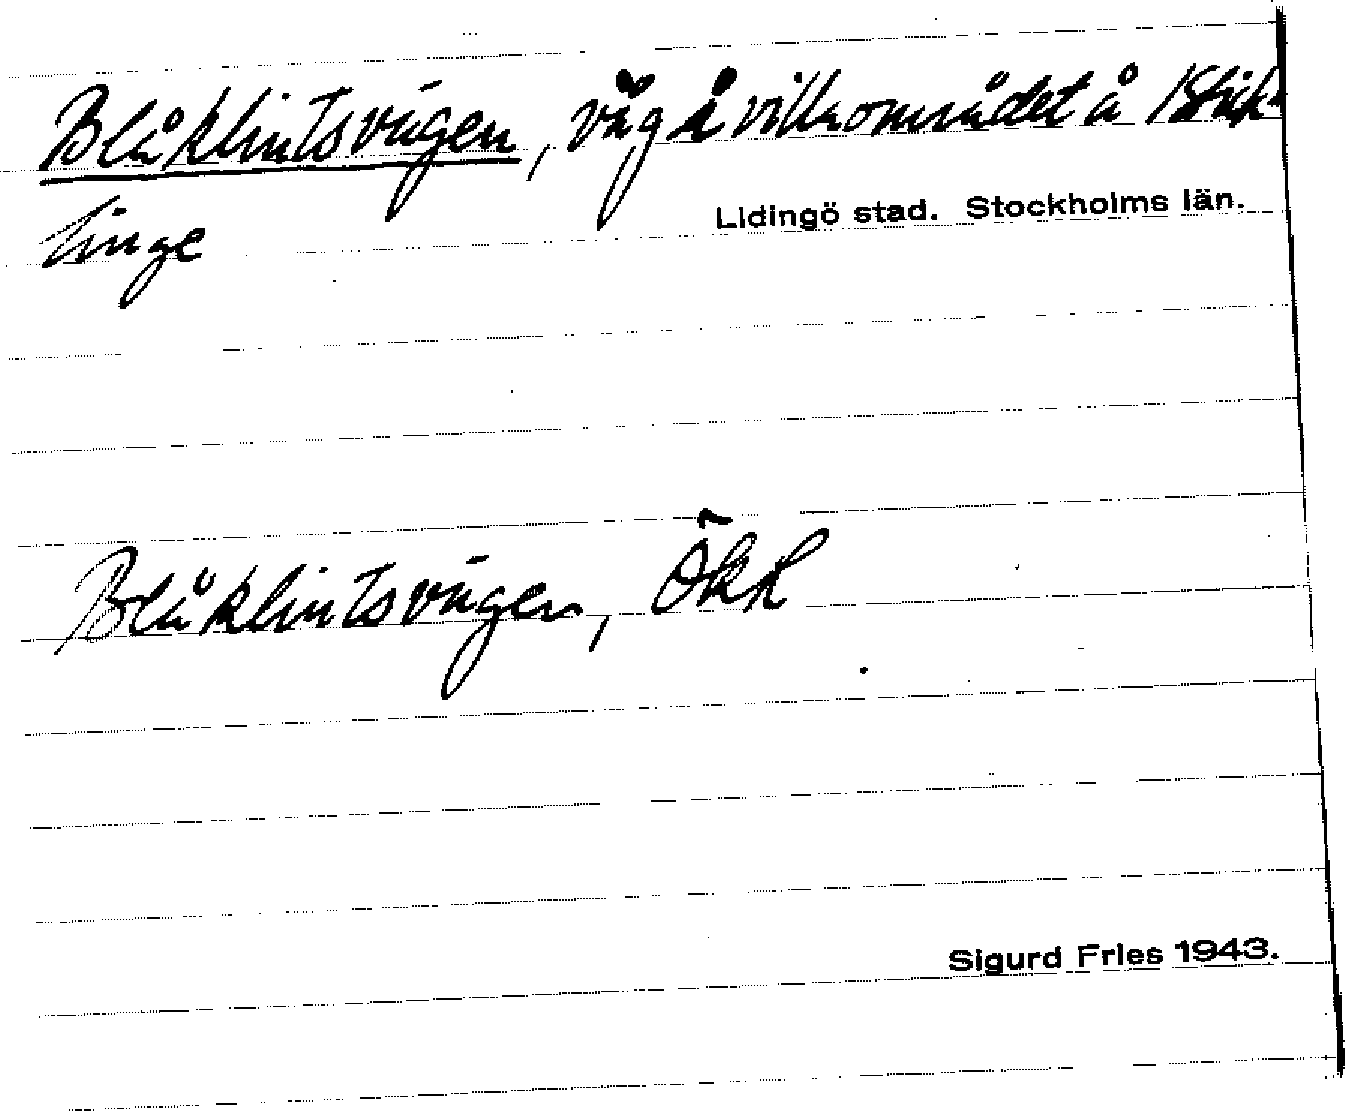 Blåklintsvägen, väg å villaområdet å Stick-
linge
Lidingö stad. Stockholms län.
Blåklintsvägen, ÖkK
Sigurd Fries 1943.